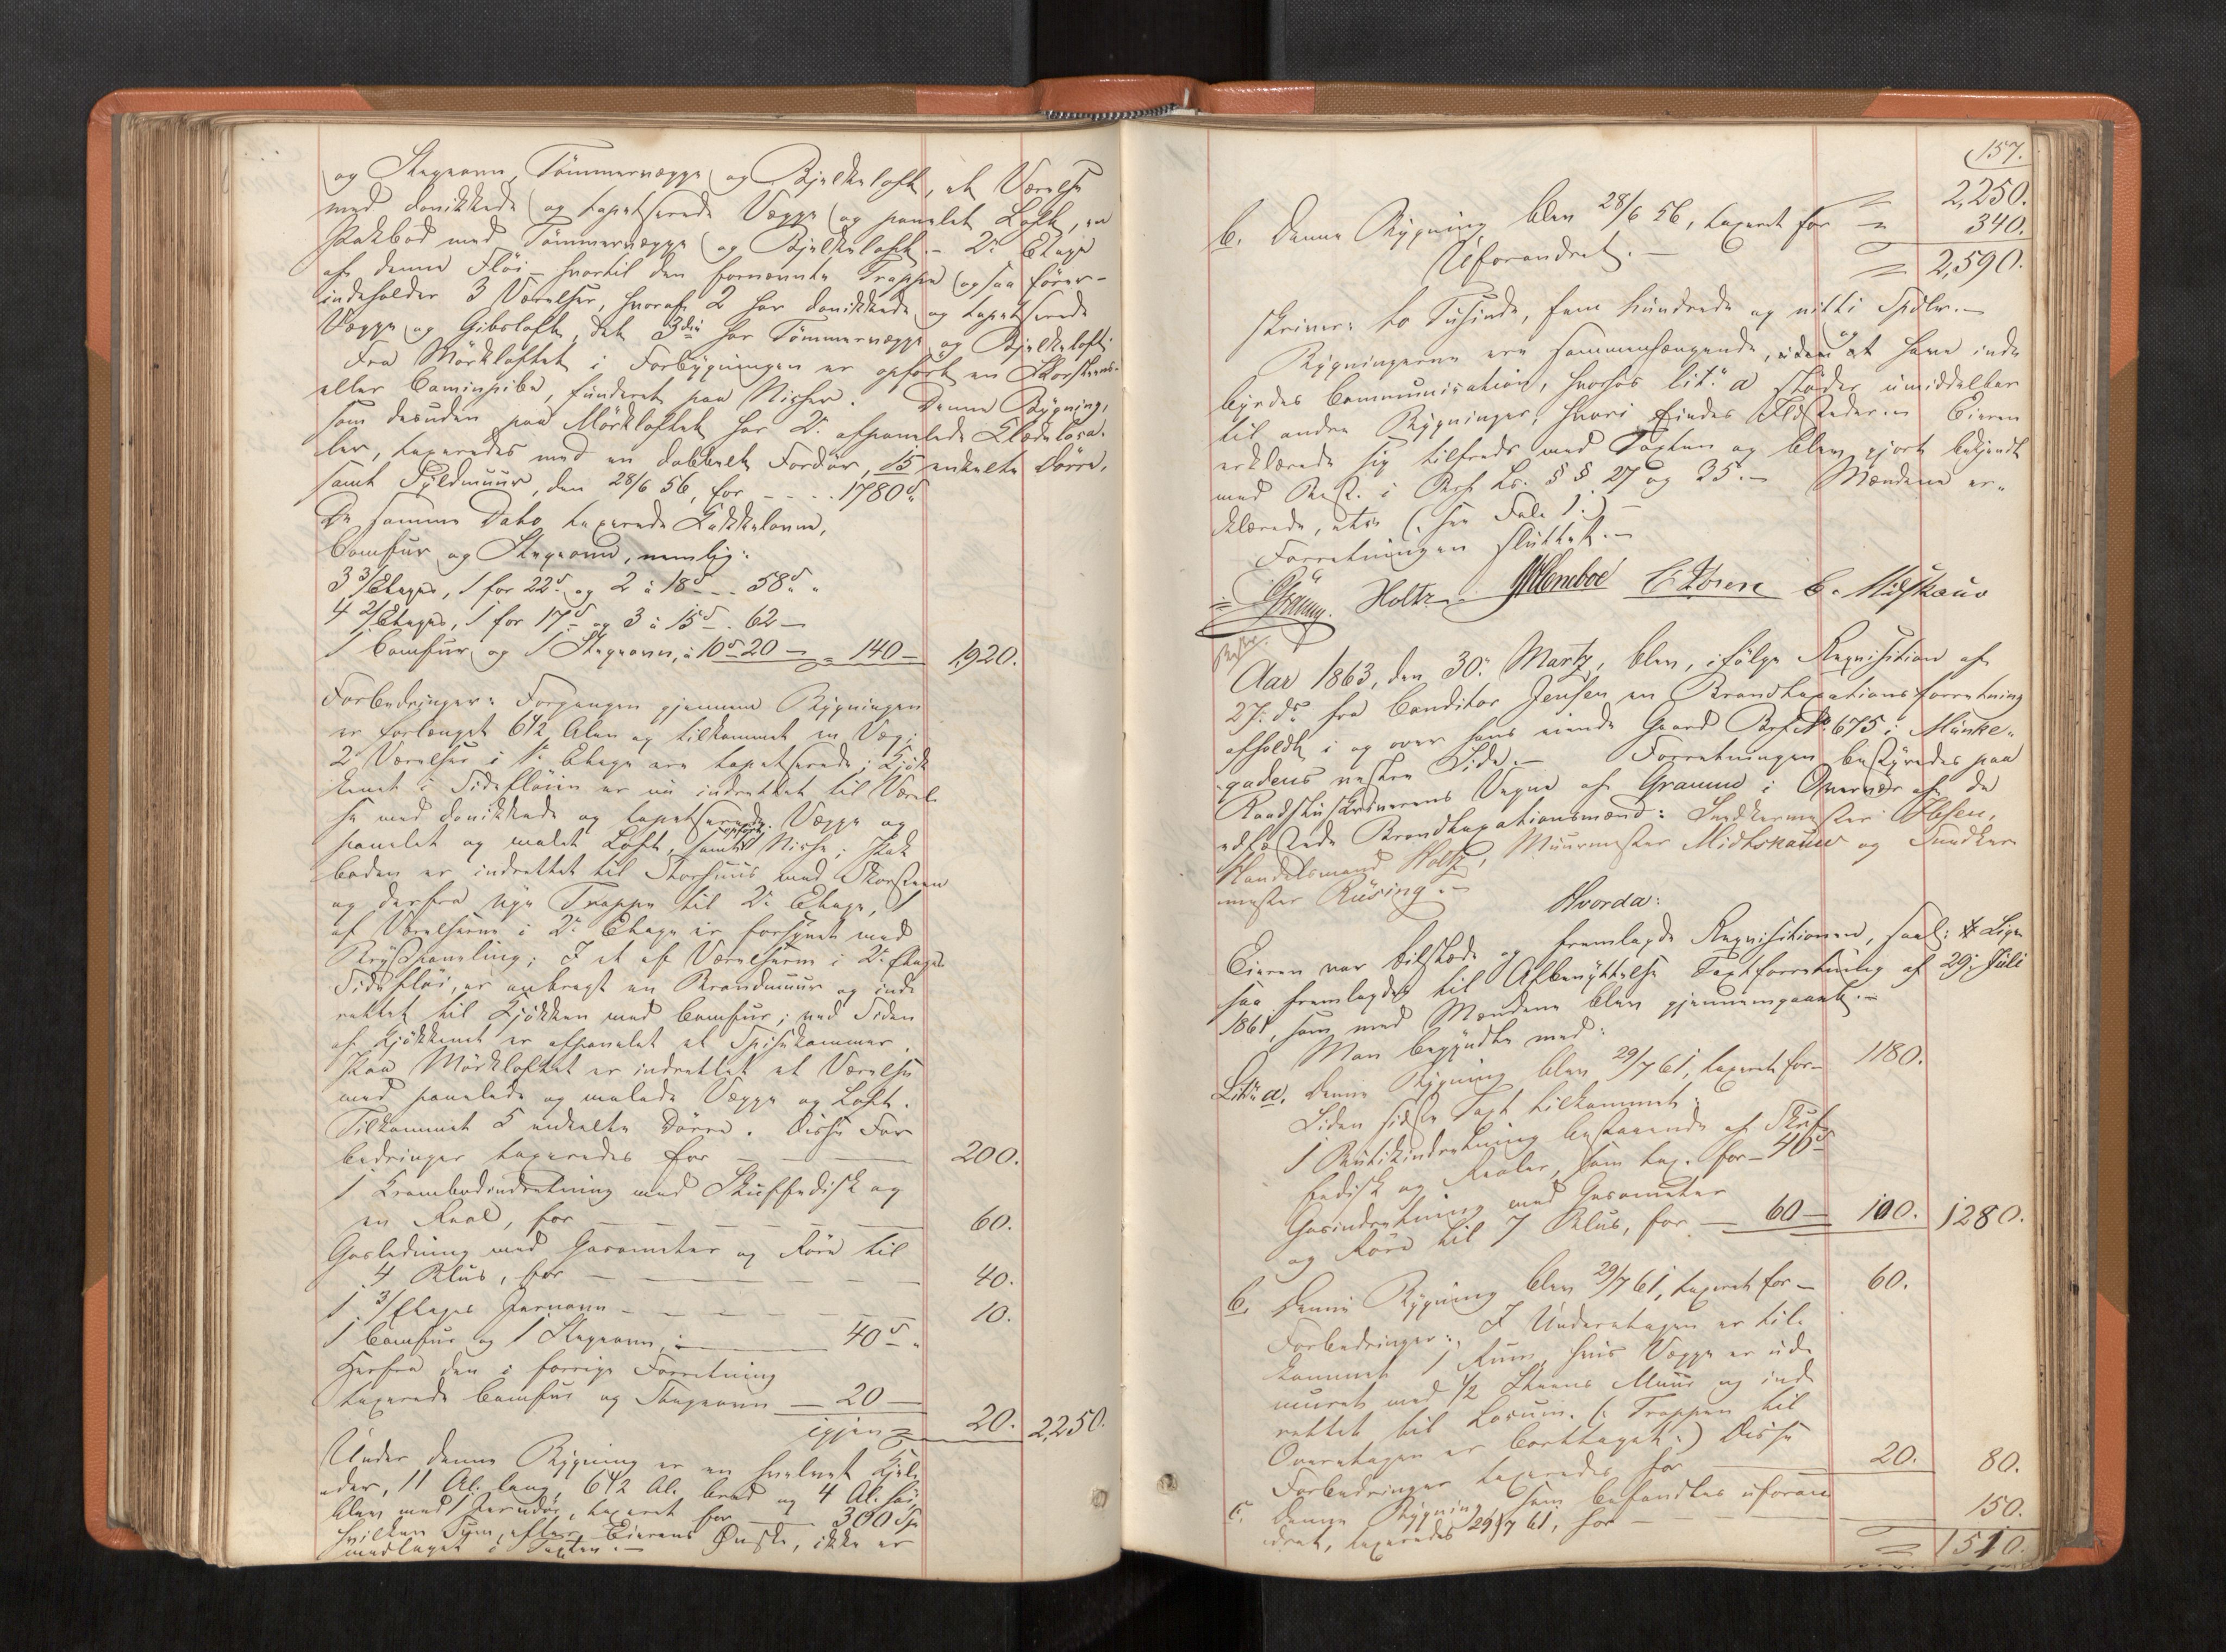 og Stegeovn, Tømmervægge og Bjelkeloft, et Værelse
med donikkede og tapetserede Vægge og panelet Loft, en
Pakbod med Tømmervægge og Bjelkeloft. - 2n Etage
af denne Fløi - hvortil den fornævnte Trappe ogsaa fører -
indeholder 3 Værelser, hvoraf 2 har donikkede og tapetserede
Vægge og Gibsloft, det 3die har Tømmervægge og Bjelkeloft.
Fra Mørkloftet i Forbygningen er opført en Skorsteens-
eller Caminpibe, funderet paa Nisher. Denne Bygning,
som desuden paa Mørkloftet har 2n afpanelede Klædeloca-
ler, taxeredes med en dobbelt Fordør, 15 enkelte Dørre,
samt Fyldmuur, den 28/6 56, for - - - . 1780 d.
De samme Dato taxerede Kakkelovne,
Comfur og Stegeovn, nemlig:
3 3/Etages, 1 for 22d. og 2 à 18d - - . 58d. "
4 2/Etages, 1 for 17d og 3 à 15d - . 62 -
1 Comfur og 1 Stegeovn, à 10d 20 - = 140 - 1,920.
Forbedringer: Forgangen gjennem Bygningen
er forlænget 6 1/2 Alen og tilkommet en Væg;
2 Værelser i 1e Etage ere tapetserede; Kjøk
kenet i Sidefløien er nu indrettet til Værel-
se med donikkede og tapetserede Vægge og
panelet og malet Loft, samt opført Nishe; Pak
boden er indrettet til Storhuus med Skorsteen
og derfra nye Trappe til 2n Etage, 1
af Værelserne i 2n Etage er forsynet med
Brystpaneling; I et af Værelserne i 2n Etages
Sidefløi, er anbragt en Brandmuur og ind-
rettet til Kjøkken med Comfur; ved Siden
af Kjøkkenet er afpanelet et Spisekammer.
Paa Mørkloftet er indrettet et Værelse
med panelede og malede Vægge og Loft.
Tilkommet 5 enkelte Dørre. Disse For
bedringer taxeredes for - - - 200.
1 Krambodindretning med Skuffedisk og
en Reol, for - - - - - - 60.
Gasledning med Gasometer og Røre til
4 Blus, for - - - - - 40.
1 3/Etages Jernovn - - - - - 10.
1 Comfur og 1 Stegeovn, - 40d - "
Herfra den i forrige Forretning
taxerede Comfur og Stegeovn - 20 -
igjen = 20. 2,250.
Under denne Bygning er en hvelvet Kjel-
der, 11 Al. lang, 6 1/2 Al. bred og 4 Al. høi,
blev med 1 Jerndør, taxeret for - 300 Sp
hvilken Sum, efter Eierens Ønske, ikke er
medtaget i Taxten. -
157.
= 2,250.
b. Denne Bygning blev 28/6 56, taxeret for = 340.
Uforandret. - = 2,590.
skriver: to Tusinde, fem hundrede og nitti Spdlr. -
Bygningerne ere sammenhængende, uden at have ind-
byrdes Communication, hvorhos Litr. a støder umiddelbar
til andre Bygninger, hvori findes Ildsteder. - Eieren
erklærede sig tilfreds med Taxten og blev gjort bekjendt
med Best. i Brf. Lo. § § 27 og 35. - Mændene er-
klærede, etc. (: see Fol. 1 :) -
Forretningen sluttet. -
Gramm. Holtz. C. Midtskauw
Aar 1863, den 30. Martz, blev, ifølge Requisition af
27. ds. fra Conditor Jensen en Brandtaxationsforretning
afholdt i og over hans eiende Gaard Brf. No. 675 i Munke-
gadens vestre Side. - Forretningen bestyredes paa
Raadstuskriverens Vegne af Gramm i Overvær af de
edfæstede Brandtaxationsmænd: Snedkermester Olsen,
Handelsmand Holtz, Muurmester Midtskauw og Snedker-
mester Rüsing. -
Hvorda:
Eieren var tilstede og fremlagde Requisitionen, saal: # Lige
saa fremlagdes til Afbenyttelse Taxtforretning af 29. Juli
1861, som med Mændene blev gjennemgaaet. -
Man begyndte med:
Litr. a. Denne Bygning blev 29/7 61, taxeret for - 1180.
Siden sidste Taxt tilkommet:
1 Butikindretning bestaaende af Skuf-
fedisk og Reoler, som tax. for - 40d
Gasindretning med Gasometer
og Røre til 7 Blus, for - 60 - 100. 1280.
b. Denne Bygning blev 29/7 61, taxeret for - 60.
Forbedringer: I Underetagen er til-
kommet 1 Rum, hvis Vægge er ud-
muret med 1/2 Steens Muur og ind-
rettet til Locum. (: Trappen til
Overetagen er borttaget :) Disse
Forbedringer taxeredes for - 20. 80.
c. Denne Bygning som befandtes uforan-
dret, taxeredes 29/7 61, for - 150.
= 1510.